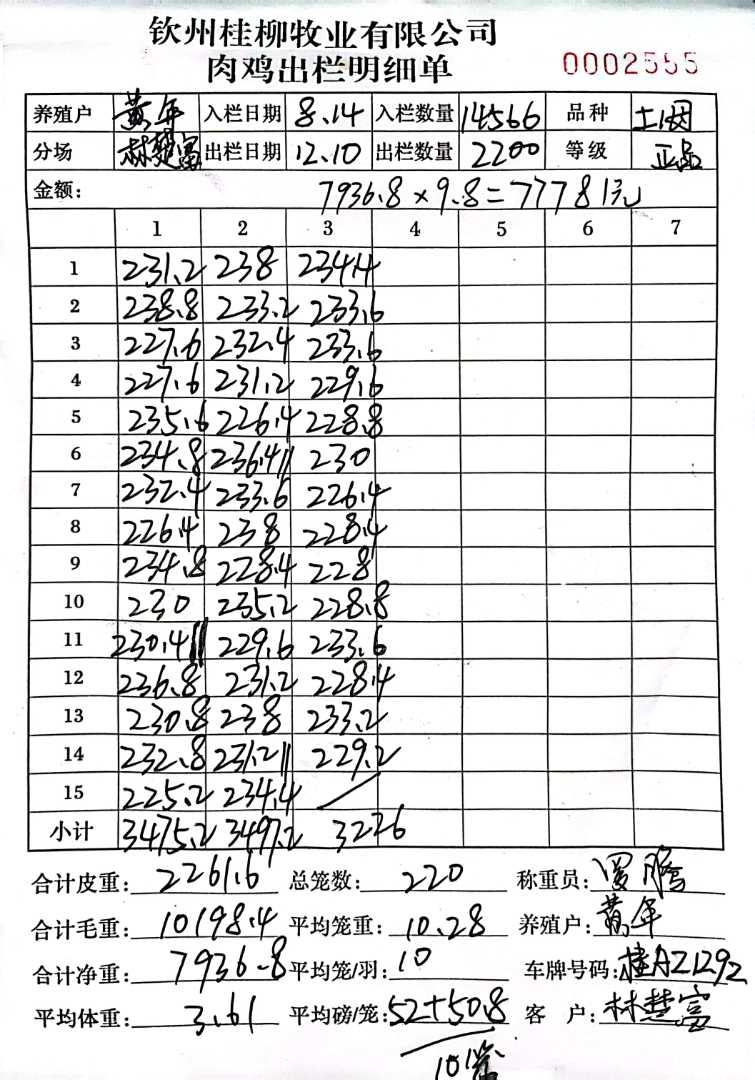 钦州桂柳牧业有限公司
肉鸡出栏明细单 0002555
养殖户 黄年 入栏日期 8.14 入栏数量 14566 品种 土1因
分场 林楚富 出栏日期 12.10 出栏数量 2200 等级 正品
金额: 7936.8×9.8=77781元
1 2 3 4 5 6 7
1 231.2 238 234.4
2 238.8 233.2 233.6
3 227.6 232.4 233.6
4 227.6 231.2 229.6
5 235.6 226.4 228.8
6 234.8 236.4 230
7 232.4 233.6 226.4
8 226.4 238 228.4
9 234.8 228.4 228
10 230 235.2 228.8
11 230.4 229.6 233.6
12 236.8 231.2 228.4
13 230.8 238 233.2
14 232.8 231.2 229.2
15 225.2 234.4
小计 3475.2 3497.2 3226
合计皮重: 2261.6 总笼数: 220 称重员:
合计毛重: 10198.4 平均笼重: 10.28 养殖户: 黄年
合计净重: 7936.8 平均笼/羽: 10 车牌号码: 桂AZ1292
平均体重: 3.61 平均磅/笼: 52+50.8 客户: 林楚富
101笼